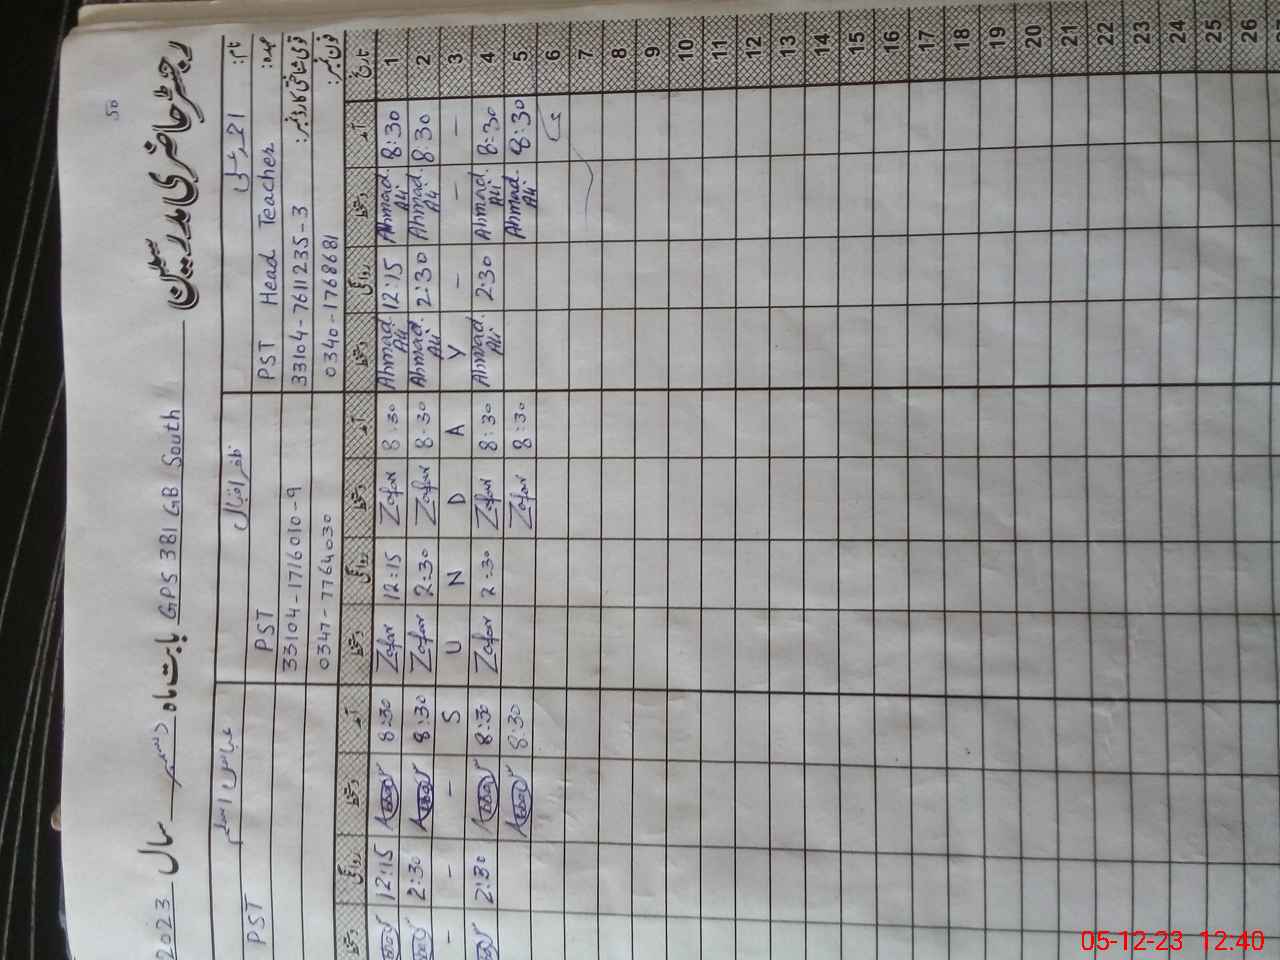 50
رجسٹر حاضری مدرسین بابت ماہ GPS 381 GB South دسمبر سال 2023
نام: احمد علی ظفر اقبال عباس اسلم
عہدہ: PST Head Teacher PST PST
قومی شناختی کارڈ نمبر: 33104-7611235-3 33104-1716010-9
فون نمبر: 0340-1768681 0347-7764030
تاریخ آمد دستخط روانگی دستخط آمد دستخط روانگی دستخط آمد دستخط روانگی دستخط
1 8:30 Ahmad Ali 12:15 Ahmad Ali 8:30 Zafar 12:15 Zafar 8:30 Abbas 12:15 Abbas
2 8:30 Ahmad Ali 2:30 Ahmad Ali 8:30 Zafar 2:30 Zafar 8:30 Abbas 2:30 Abbas
3 - - - Y A D N U S - - -
4 8:30 Ahmad Ali 2:30 Ahmad Ali 8:30 Zafar 2:30 Zafar 8:30 Abbas 2:30 Abbas
5 8:30 Ahmad Ali 8:30 Zafar 8:30 Abbas
6
7
8
9
10
11
12
13
14
15
16
17
18
19
20
21
22
23
24
25
26
05-12-23 12:40